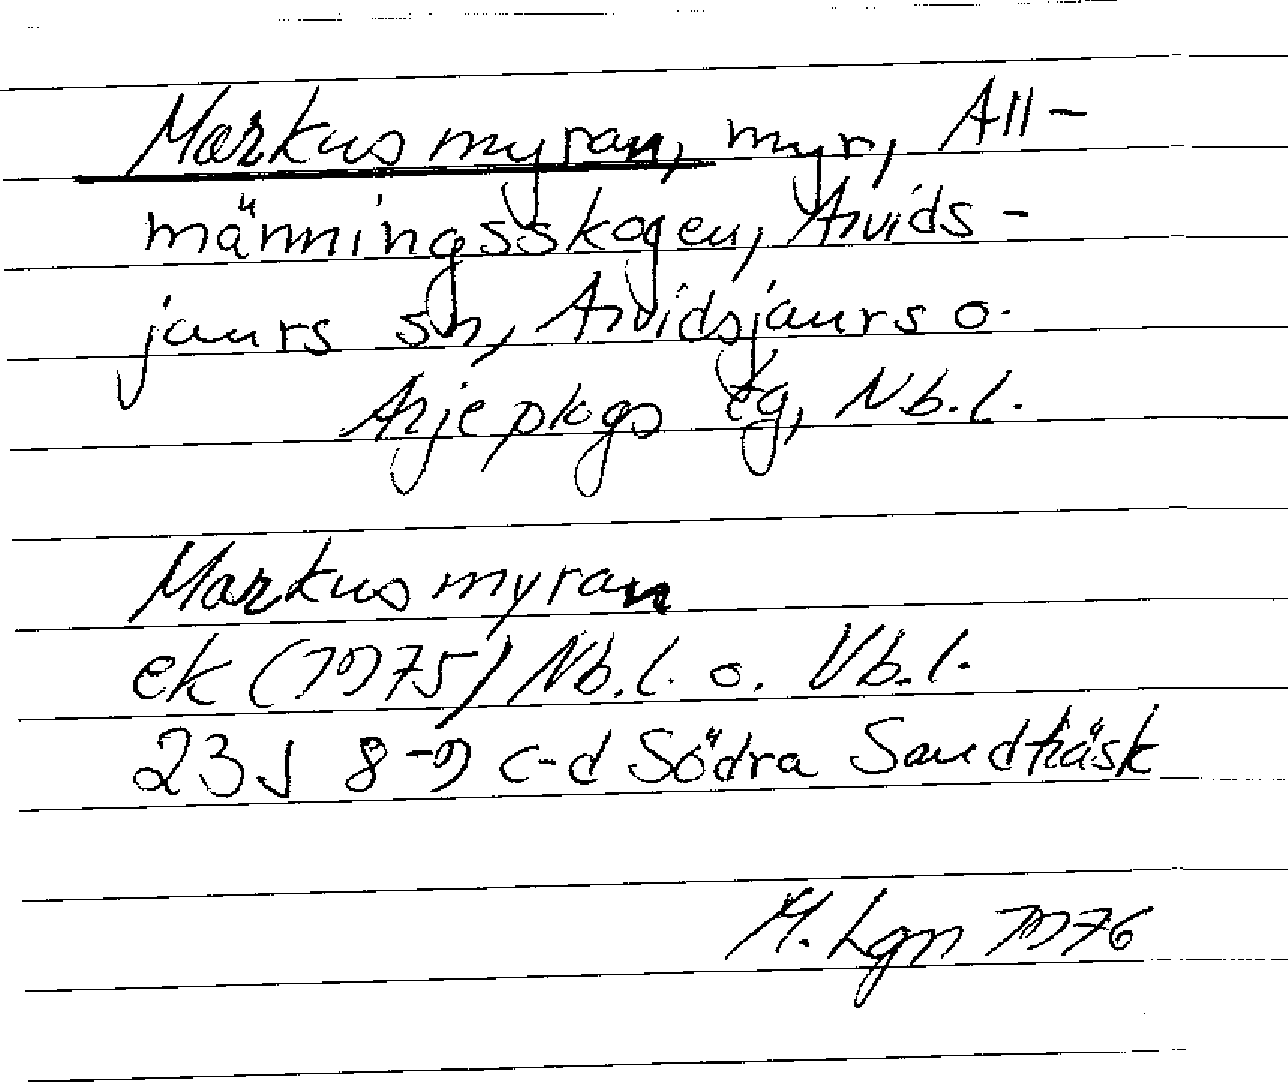 Markusmyran, myr, All-
männingsskogen, Arvids-
jaurs sn, Arvidsjaurs o.
Arjeplogs tg, Nb.l.
Markusmyran
ek (1975) Nb.l. o. Vb.l.
23J 8-9 c-d Södra Sandträsk
M. Lgn 1976